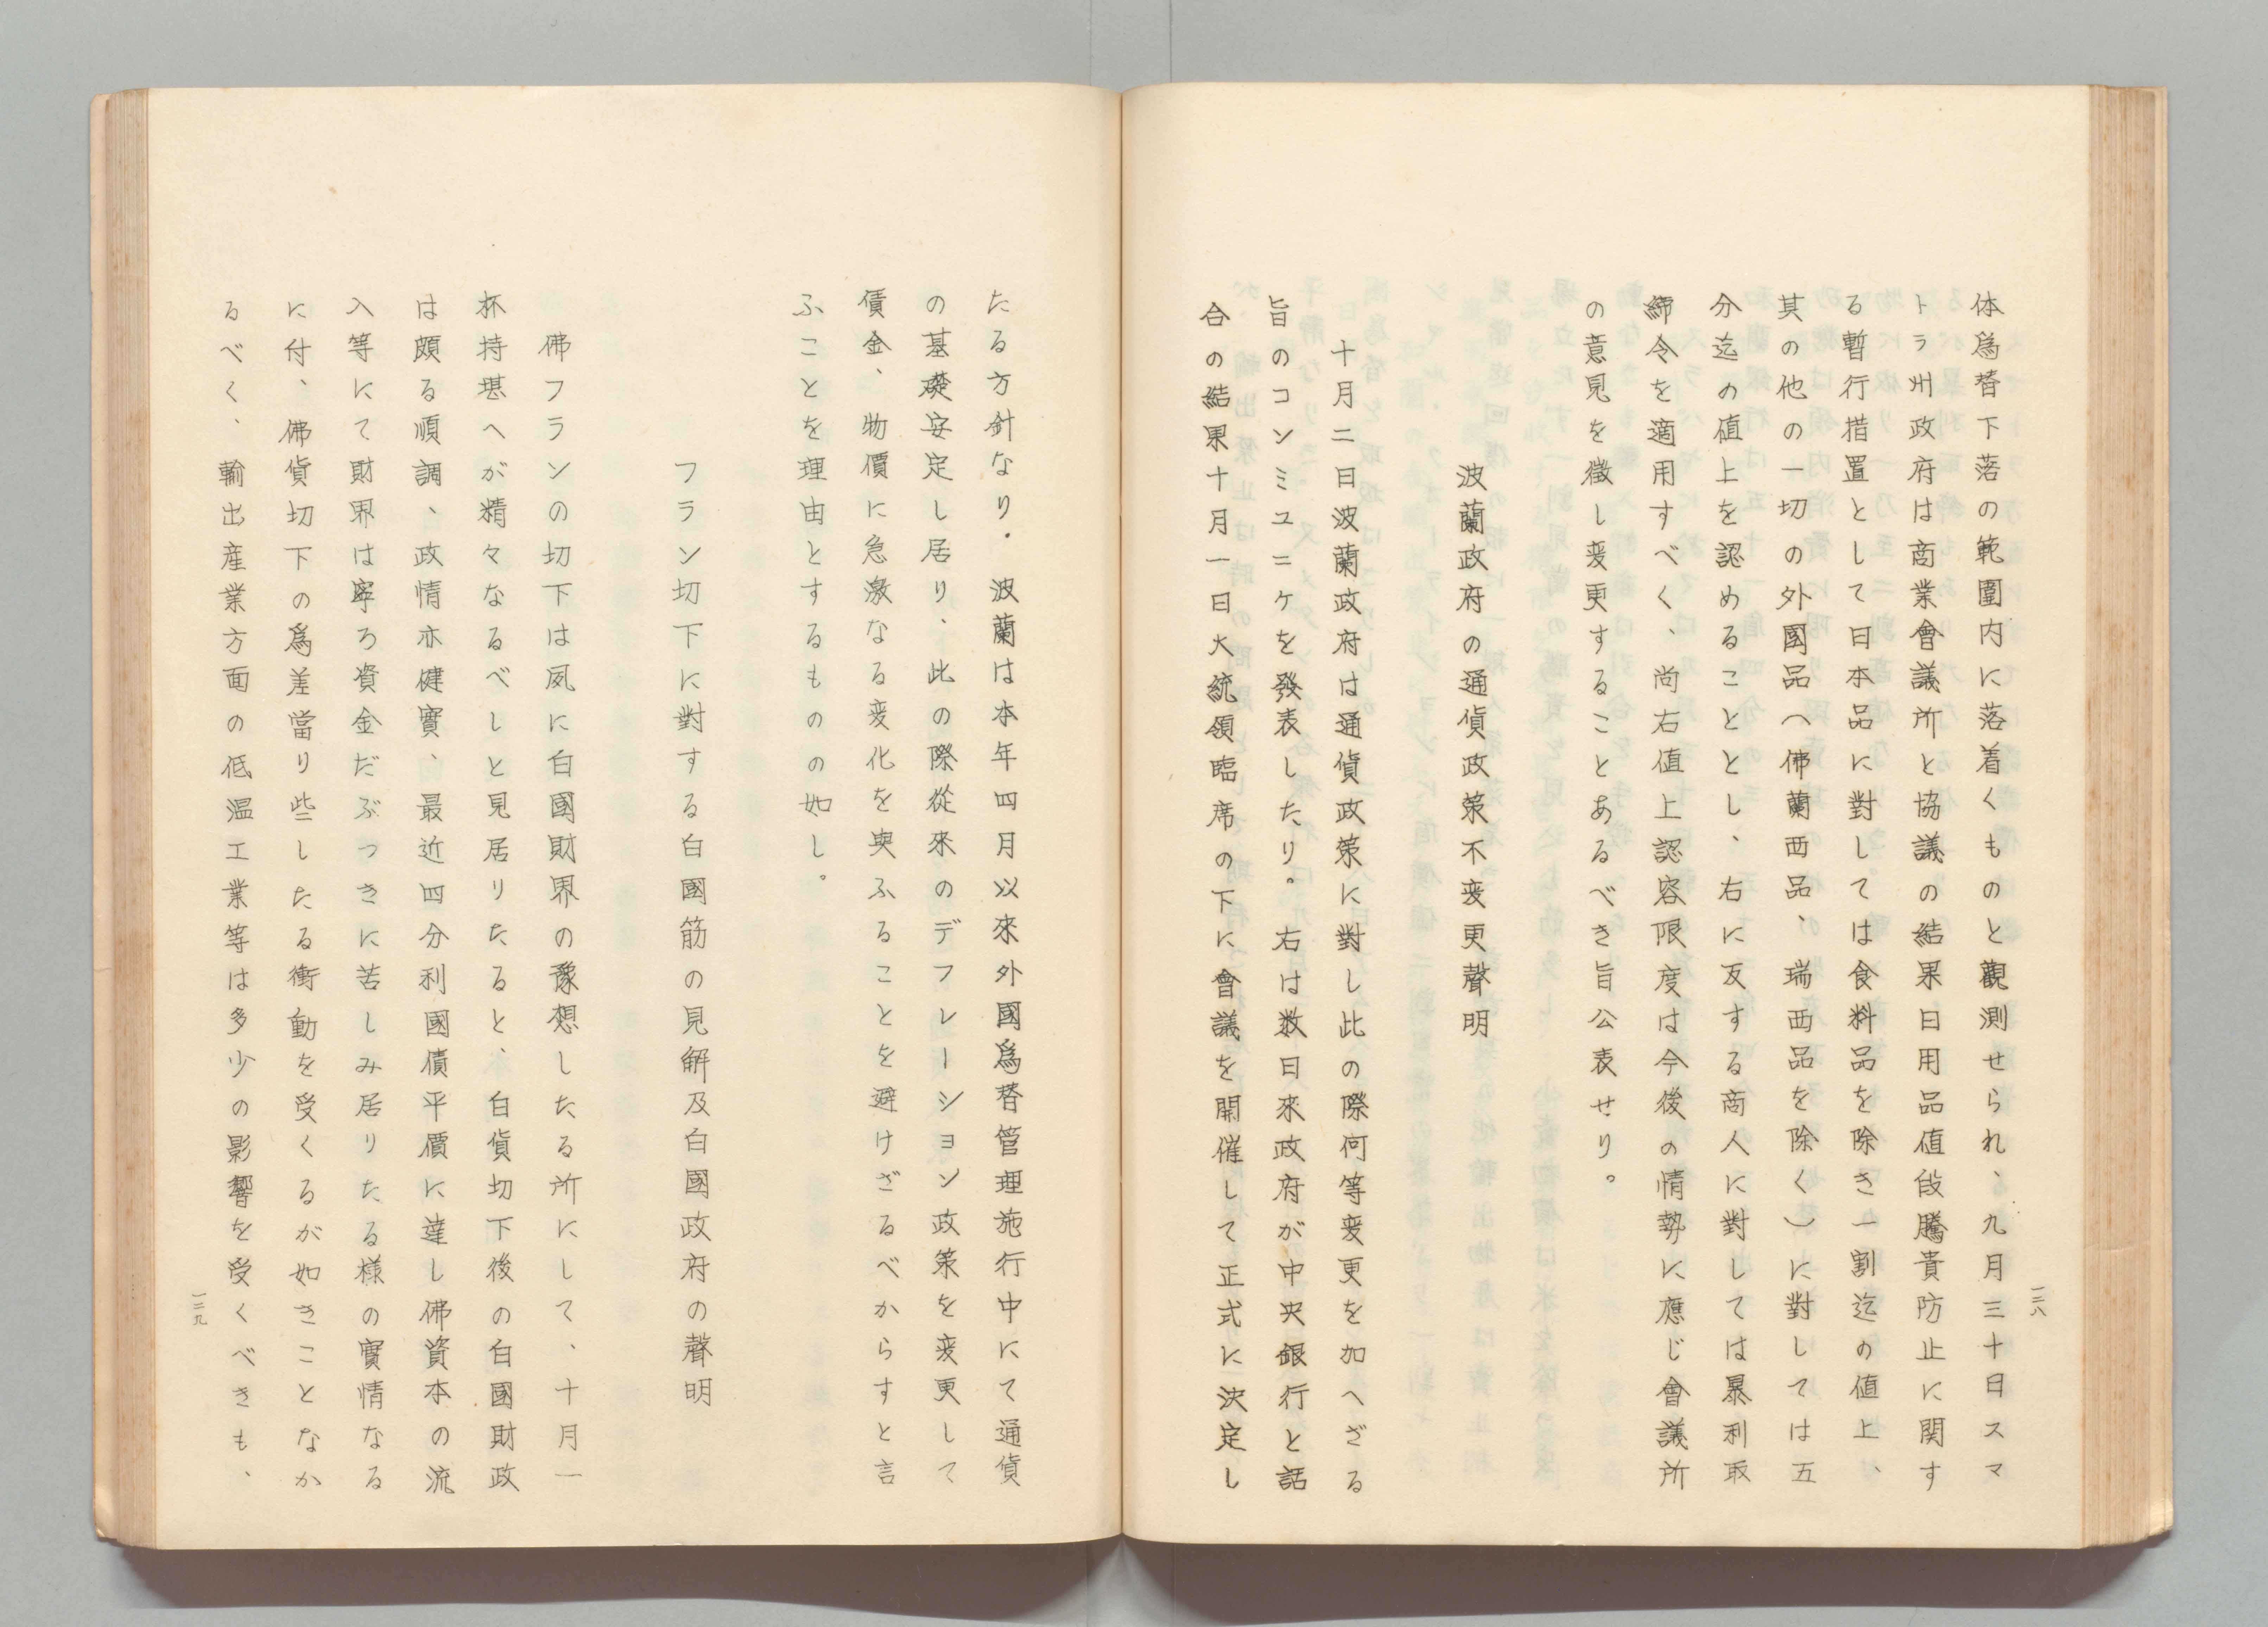 体為替下落の範圍内に落着くものと觀測せられ、九月三十日スマ
トラ州政府は商業會議所と協議の結果日用品値段騰貴防止に関す
る暫行措置として日本品に對しては食料品を除き一割迄の値上、
其の他の一切の外國品(佛蘭西品、瑞西品を除く)に對しては五
分迄の値上を認めることとし、右に反する商人に對しては暴利取
締令を適用すべく、尚右値上認容限度は今後の情勢に應じ會議所
の意見を徴し変更することあるべき旨公表せり。
波蘭政府の通貨政策不変更聲明
十月二日波蘭政府は通貨政策に對し此の際何等変更を加へざる
旨のコンミユニケを發表したり。右は数日来政府が中央銀行と話
合の結果十月一日大統領臨席の下に會議を開催して正式に決定し
一二八
たる方針なり.波蘭は本年四月以來外國爲替管理施行中にて通貨
の基礎安定し居り、此の際從來のデフレーション政策を変更して
債金、物價に急激なる変化を與ふることを避けざるべからすと言
ふことを理由とするものの如し。
フラン切下に對する白國筋の見解及白國政府の聲明
佛フランの切下は夙に白國財界の豫想したる所にして、十月一
杯持堪へが精々なるべしと見居りたると、白貨切下後の白國財政
は頗る順調、政情亦健實、最近四分利國債平價に達し佛資本の流
入等にて財界は寧ろ資金だぶつきに苦しみ居りたる様の實情なる
に付、佛貨切下の爲差當り些したる衝動を受くるが如きことなか
るべく、輸出産業方面の低溫工業等は多少の影響を受くべきも、
一二九